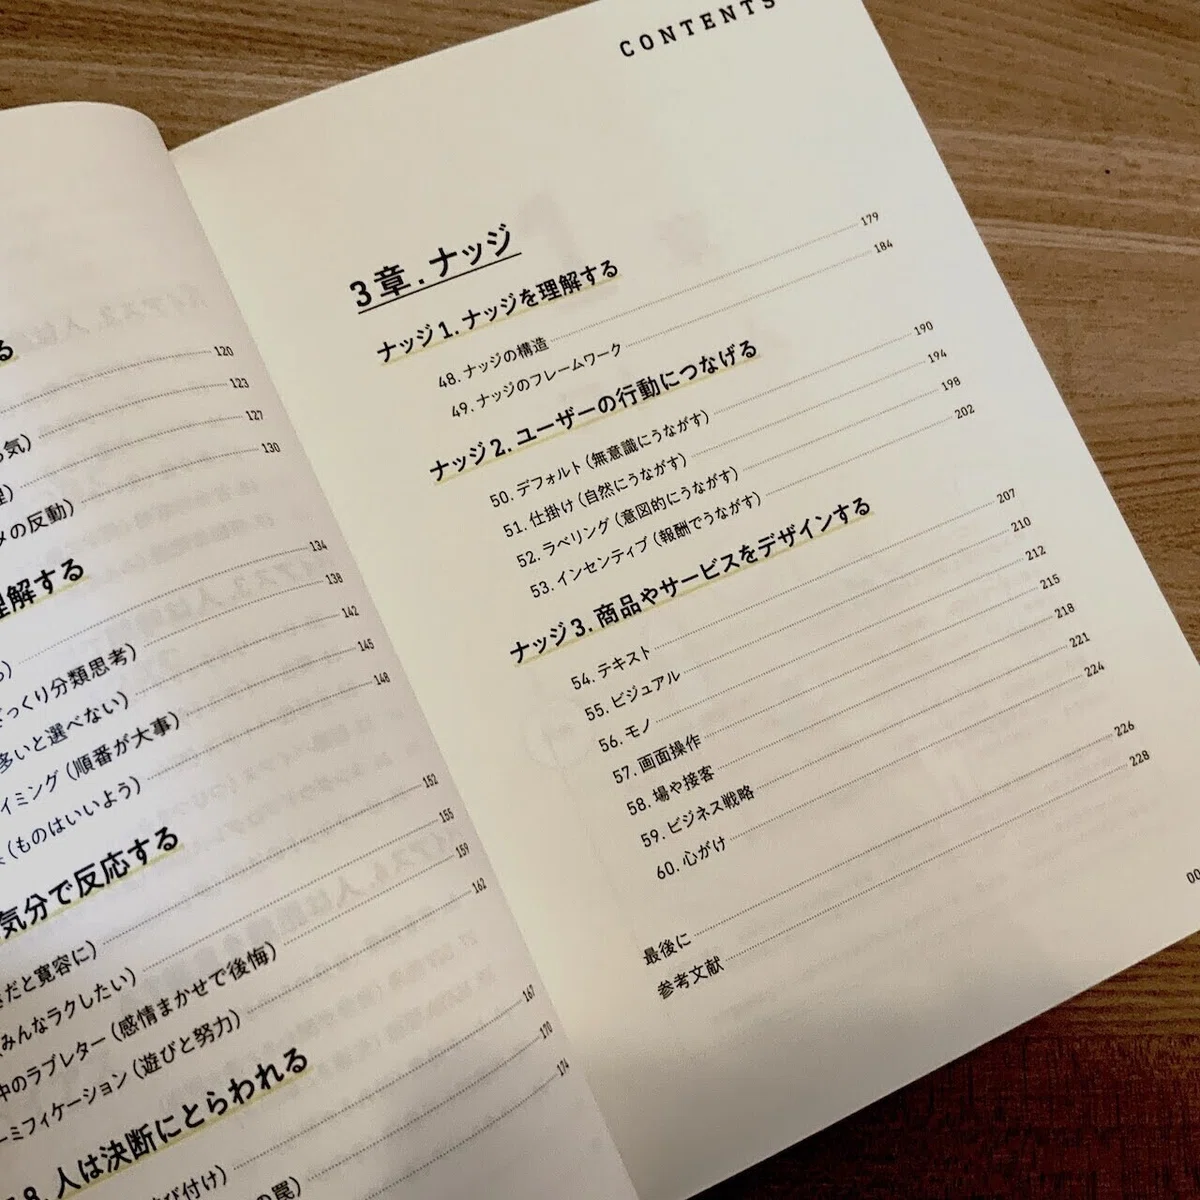 る
120
123
気) 127
理) 130
メの反動)
理解する
134
る) 138
ざっくり分類思考) 142
多いと選べない) 145
イミング (順番が大事) 148
(ものはいいよう)
気分で反応する
152
だと寛容に) 155
みんなラクしたい) 159
中のラブレター (感情まかせで後悔) 162
ーミフィケーション (遊びと努力)
8. 人は決断にとらわれる
167
び付け) 170
の罠) 174
CONTENTS
3章. ナッジ
ナッジ 1. ナッジを理解する
48. ナッジの構造 179
49. ナッジのフレームワーク 184
ナッジ 2. ユーザーの行動につなげる
50. デフォルト (無意識にうながす) 190
51. 仕掛け (自然にうながす) 194
52. ラベリング (意図的にうながす) 198
53. インセンティブ (報酬でうながす) 202
ナッジ 3. 商品やサービスをデザインする
54. テキスト 207
55. ビジュアル 210
56. モノ 212
57. 画面操作 215
58. 場や接客 218
59. ビジネス戦略 221
60. 心がけ 224
最後に 226
参考文献 228
00